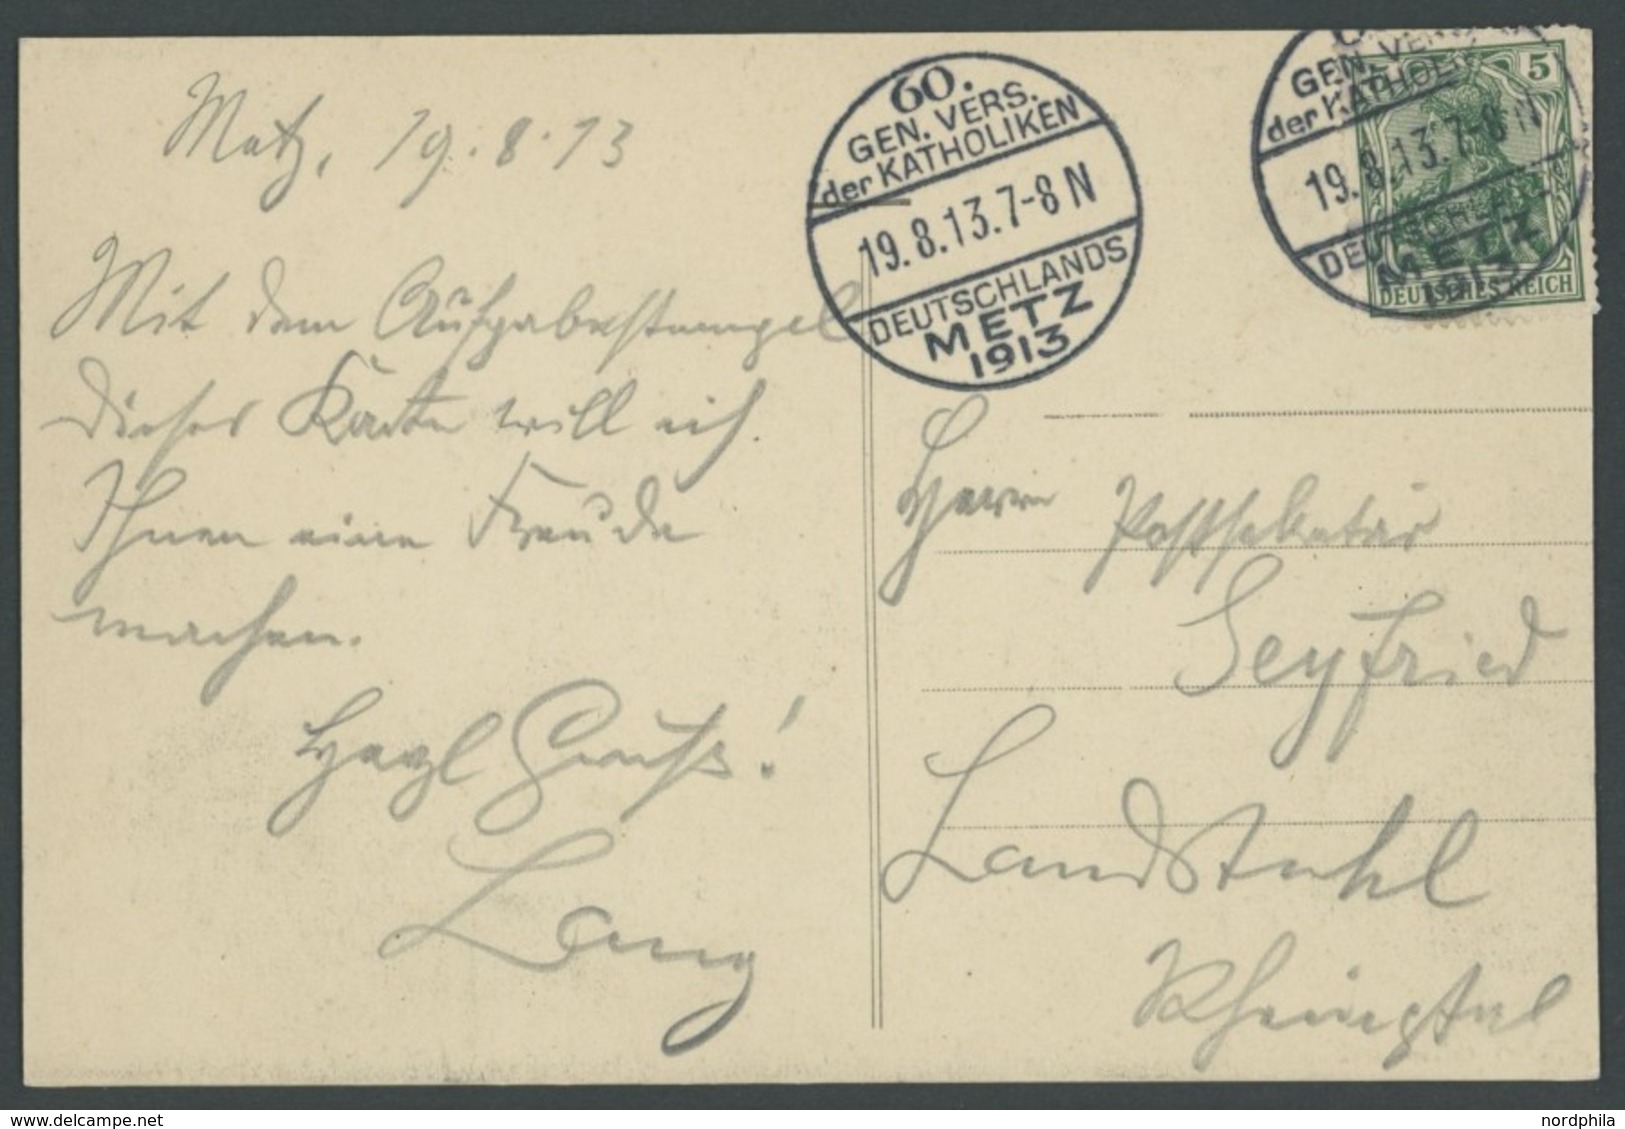 Metz, 19.8.13
Mit dem Aufgabestempel
dieser Karte will ich
Ihnen eine Freude
machen.
Herzl Gruß!
Lang
60.
GEN. VERS.
der KATHOLIKEN
19.8.13.7-8 N
DEUTSCHLANDS
METZ
1913
GEN. VERS
der KATHOLI
19.8.13.7-8 N
DEUTSCHLANDS
METZ
1913
5
DEUTSCHES REICH
Herrn Postsekretär
Seyfried
Landstuhl
Rheinpfal
www.delcampe.net
nordphila